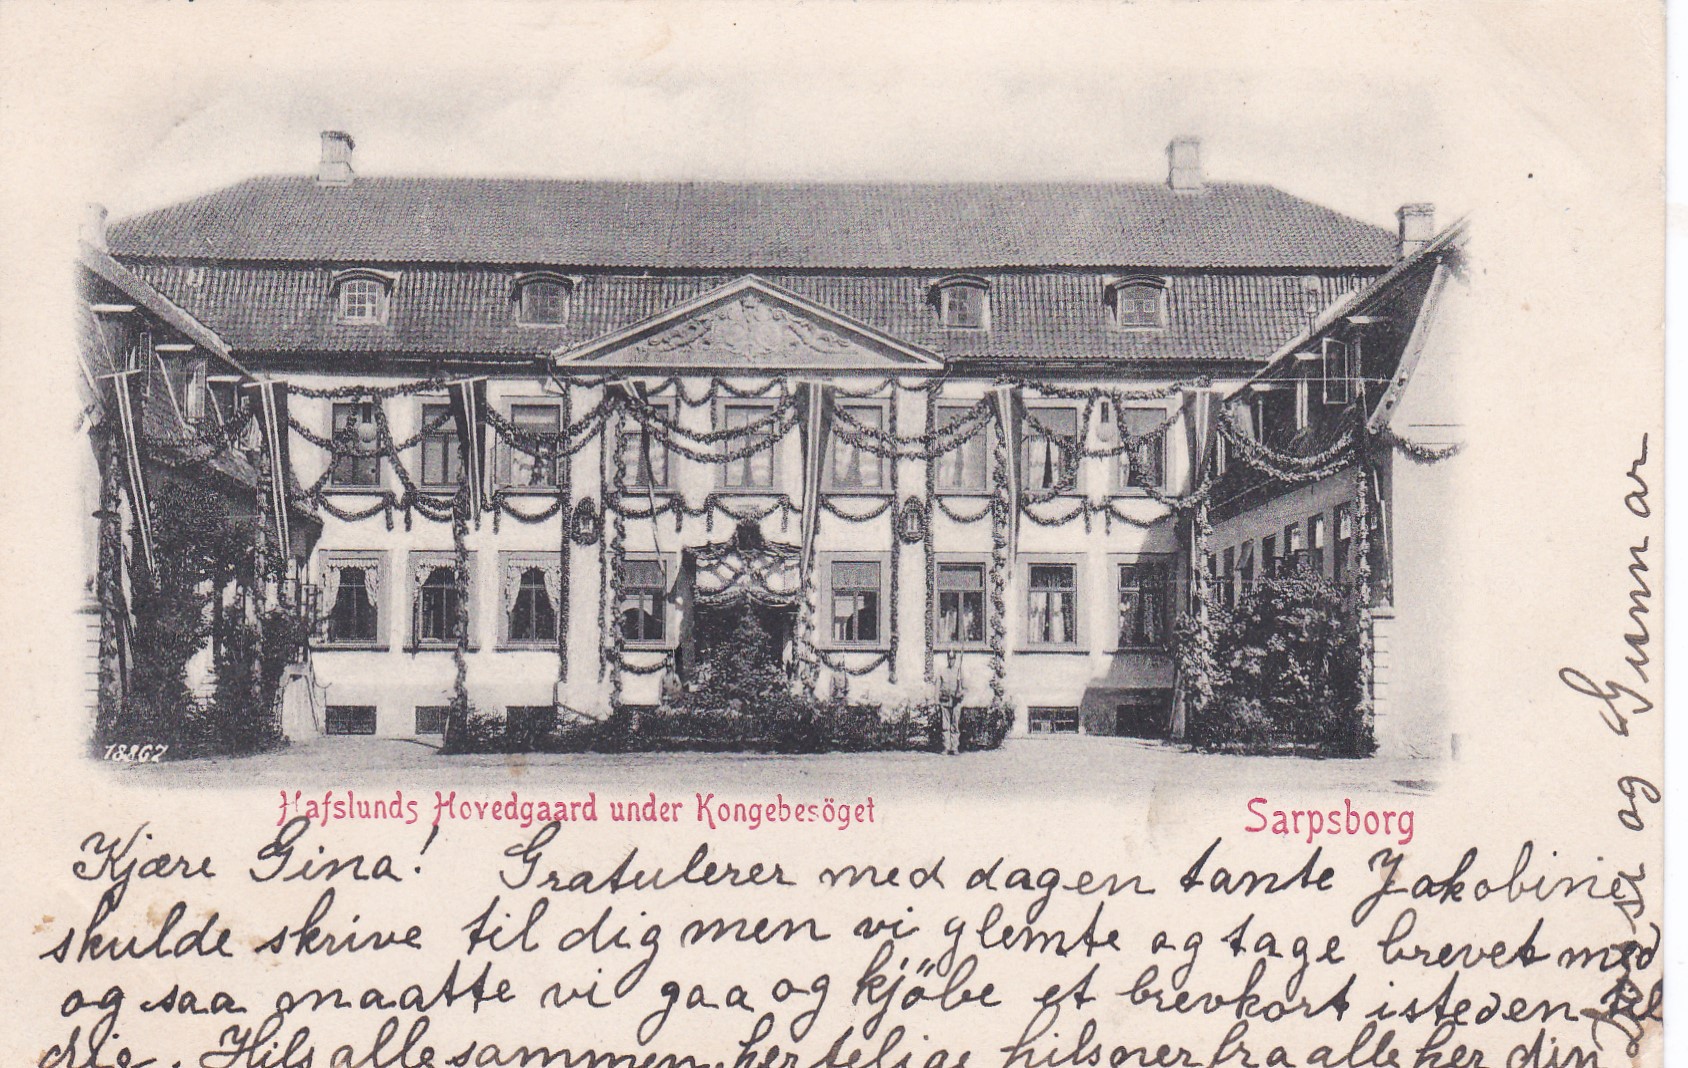 18867
Hafslunds Hovedgaard under Kongebesöget
Sarpsborg
Kjære Gina! Gratulerer med dagen tante Jakobine
skulde skrive til dig men vi glemte og tage brevet med
og saa maatte vi gaa og kjöbe et brevkort isteden til
dig. Hils allesammen. hertelige hilsner fra alle her din
og Gunnar